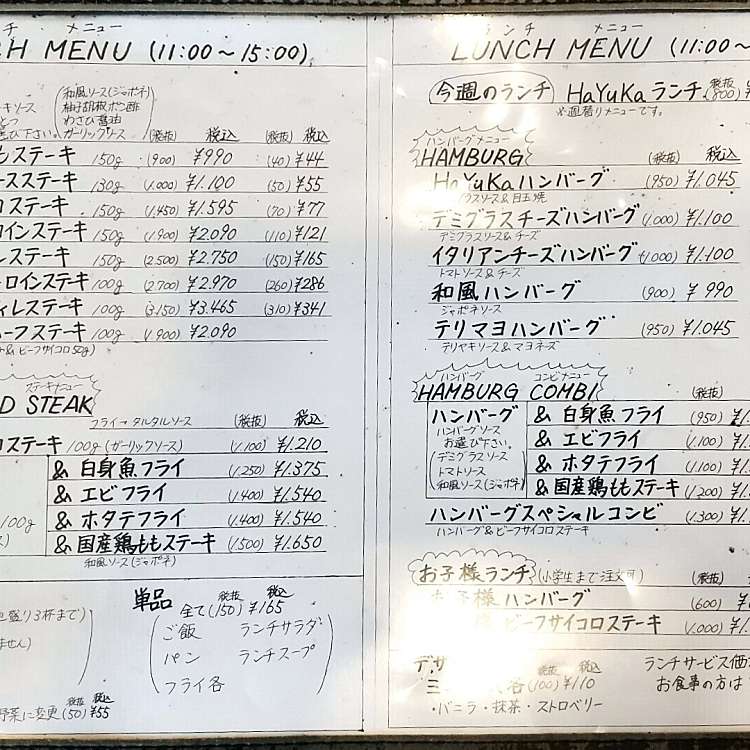 ランチ メニュー
CH MENU (11:00〜15:00)
和風ソース(ジャポネ)
柚子胡椒ポン酢
わさび醤油
お選び下さい。ガーリックソース (税抜) 税込 (税抜) 税込
ももステーキ 150g (900) ¥990 (40) ¥44
ースステーキ 130g (1.000) ¥1.100 (50) ¥55
ロステーキ 150g (1.450) ¥1.595 (70) ¥77
ロインステーキ 150g (1.900) ¥2.090 (110) ¥121
レステーキ 150g (2.500) ¥2.750 (150) ¥165
ーロインステーキ 100g (2.700) ¥2.970 (260) ¥286
ィレステーキ 100g (3.150) ¥3.465 (310) ¥341
ーフステーキ 100g (1.900) ¥2.090
& ビーフサイコロ50g)
ステーキメニュー
D STEAK フライ→タルタルソース (税抜) 税込
ロステーキ 100g (ガーリックソース) (1.100) ¥1.210
& 白身魚フライ (1.250) ¥1.375
& エビフライ (1.400) ¥1.540
100g & ホタテフライ (1.400) ¥1.540
& 国産鶏ももステーキ (1.500) ¥1.650
和風ソース(ジャポネ)
盛り3杯まで)
ません)
野菜に変更 税抜(50) 税込¥55
単品 全て 税抜(150) 税込¥165
ご飯 ランチサラダ
パン ランチスープ
フライ各
ランチ メニュー
LUNCH MENU (11:00〜
今週のランチ HaYuKa ランチ 税抜(800)
※週替りメニューです。
ハンバーグメニュー
HAMBURG (税抜) 税込
HaYuKa ハンバーグ (950) ¥1.045
ラスソース&目玉焼
デミグラスチーズハンバーグ (1.000) ¥1.100
デミグラスソース&チーズ
イタリアンチーズハンバーグ (1.000) ¥1.100
トマトソース&チーズ
和風ハンバーグ (900) ¥990
ジャポネソース
テリマヨハンバーグ (950) ¥1.045
テリヤキソース&マヨネーズ
ハンバーグ コンビメニュー
HAMBURG COMBI (税抜)
ハンバーグ & 白身魚フライ (950) ¥1.
ハンバーグソース お選び下さい。 & エビフライ (1.100) ¥1.
(デミグラスソース トマトソース & ホタテフライ (1.100) ¥1.
和風ソース(ジャポネ) & 国産鶏ももステーキ (1.200) ¥1.
ハンバーグスペシャルコンビ (1.300) ¥1.
ハンバーグ&ビーフサイコロステーキ
お子様ランチ (小学生まで注文可) (税抜)
お子様ハンバーグ (600) ¥
ビーフサイコロステーキ (1.000) ¥1.
デザ 税抜 税込
ミ 各 (100) ¥110
・バニラ・抹茶・ストロベリー
ランチサービス価
お食事の方は